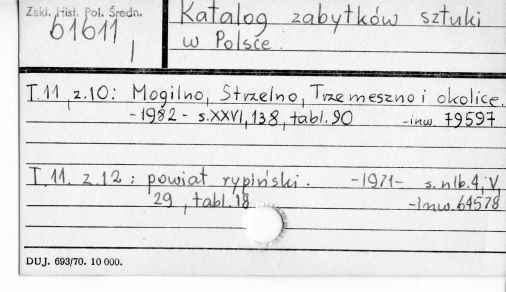 Zakł. Hist. Pol. Średn.
61611
I
Katalog zabytków sztuki
w Polsce.
T.11, z.10: Mogilno, Strzelno, Trzemeszno i okolice.
-1982- s.XXVI,138, tabl.90 -inw. 79597
T.11. z.12: powiat rypiński. -1971- s.nlb.4, V,
29, tabl.18 -inw.64578
DUJ. 693/70. 10 000.